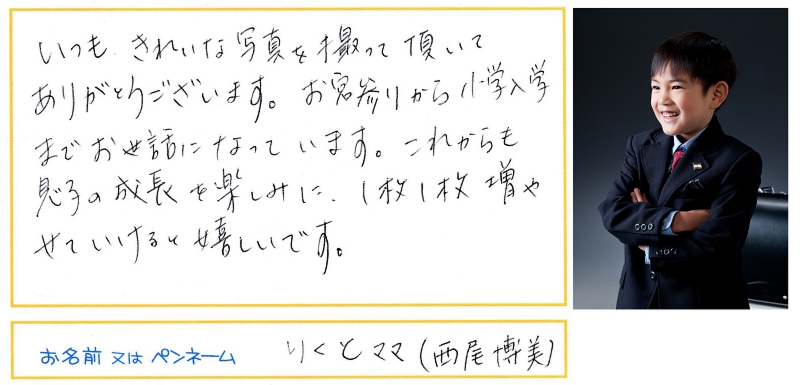 いつも きれいな写真を撮って頂いて
ありがとうございます。お宮参りから小学入学
までお世話になっています。これからも
息子の成長を楽しみに、1枚1枚増や
せていけると嬉しいです。
お名前 又は ペンネーム りくとママ(西尾博美)